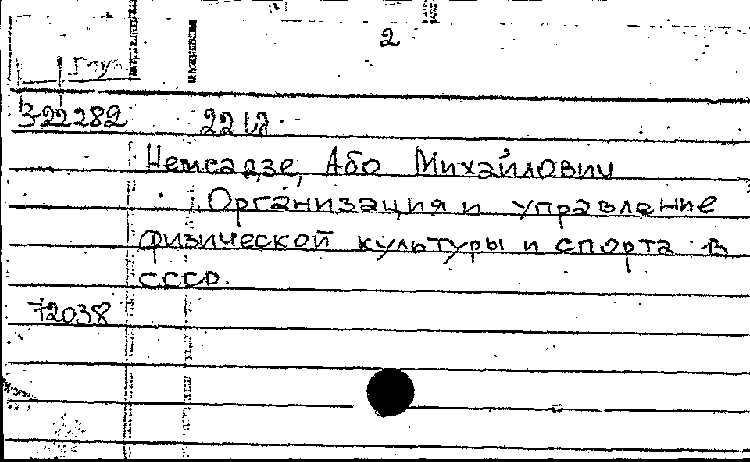 2
3-22282
Немсадзе, Або Михайлович
Организация и управление
физической культуры и спорта в
СССР.
72038